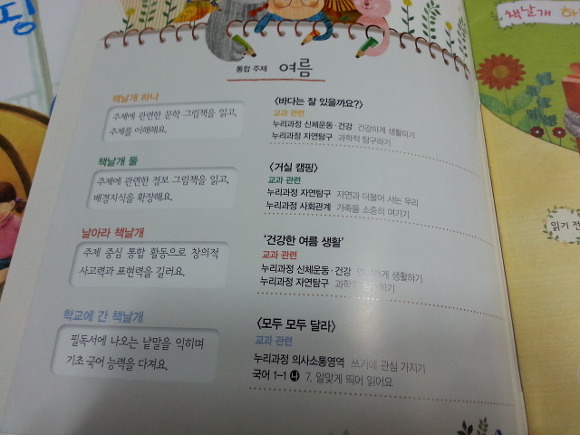 핑
통합 주제 여름
책날개 하나
주제에 관련한 문학 그림책을 읽고,
주제를 이해해요.
<바다는 잘 있을까요?>
교과 관련
누리과정 신체운동·건강 건강하게 생활하기
누리과정 자연탐구 과학적 탐구하기
책날개 둘
주제에 관련한 정보 그림책을 읽고,
배경지식을 확장해요.
<거실 캠핑>
교과 관련
누리과정 자연탐구 자연과 더불어 사는 우리
누리과정 사회관계 가족을 소중히 여기기
날아라 책날개
주제 중심 통합 활동으로 창의적
사고력과 표현력을 길러요.
'건강한 여름 생활'
교과 관련
누리과정 신체운동·건강 생활하기
누리과정 자연탐구
학교에 간 책날개
필독서에 나오는 낱말을 익히며
기초 국어 능력을 다져요.
<모두 모두 달라>
교과 관련
누리과정 의사소통영역 쓰기에 관심 가지기
국어 1-1 나 7. 알맞게 띄어 읽어요.
책날개 하
읽기 전